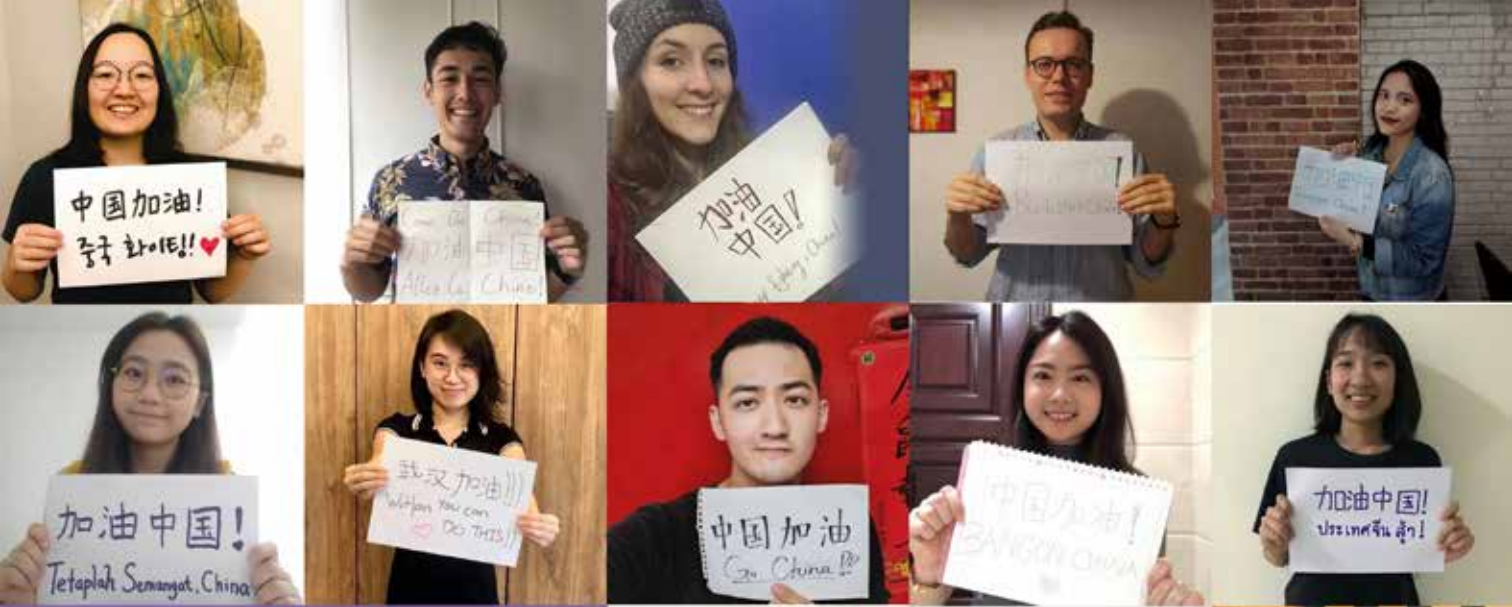 中国加油!
중국 화이팅!♥
Come On China!
加油 中国
Allez La Chine!
加油
中国!
China!
加油中国
加油中国!
Tetaplah Semangat, China
武汉加油!!!
Wuhan You can
DO THIS!!
中国加油
Go China!!!
中国加油!
BANGON CHINA
加油中国!
ประเทศจีน สู้ๆ!